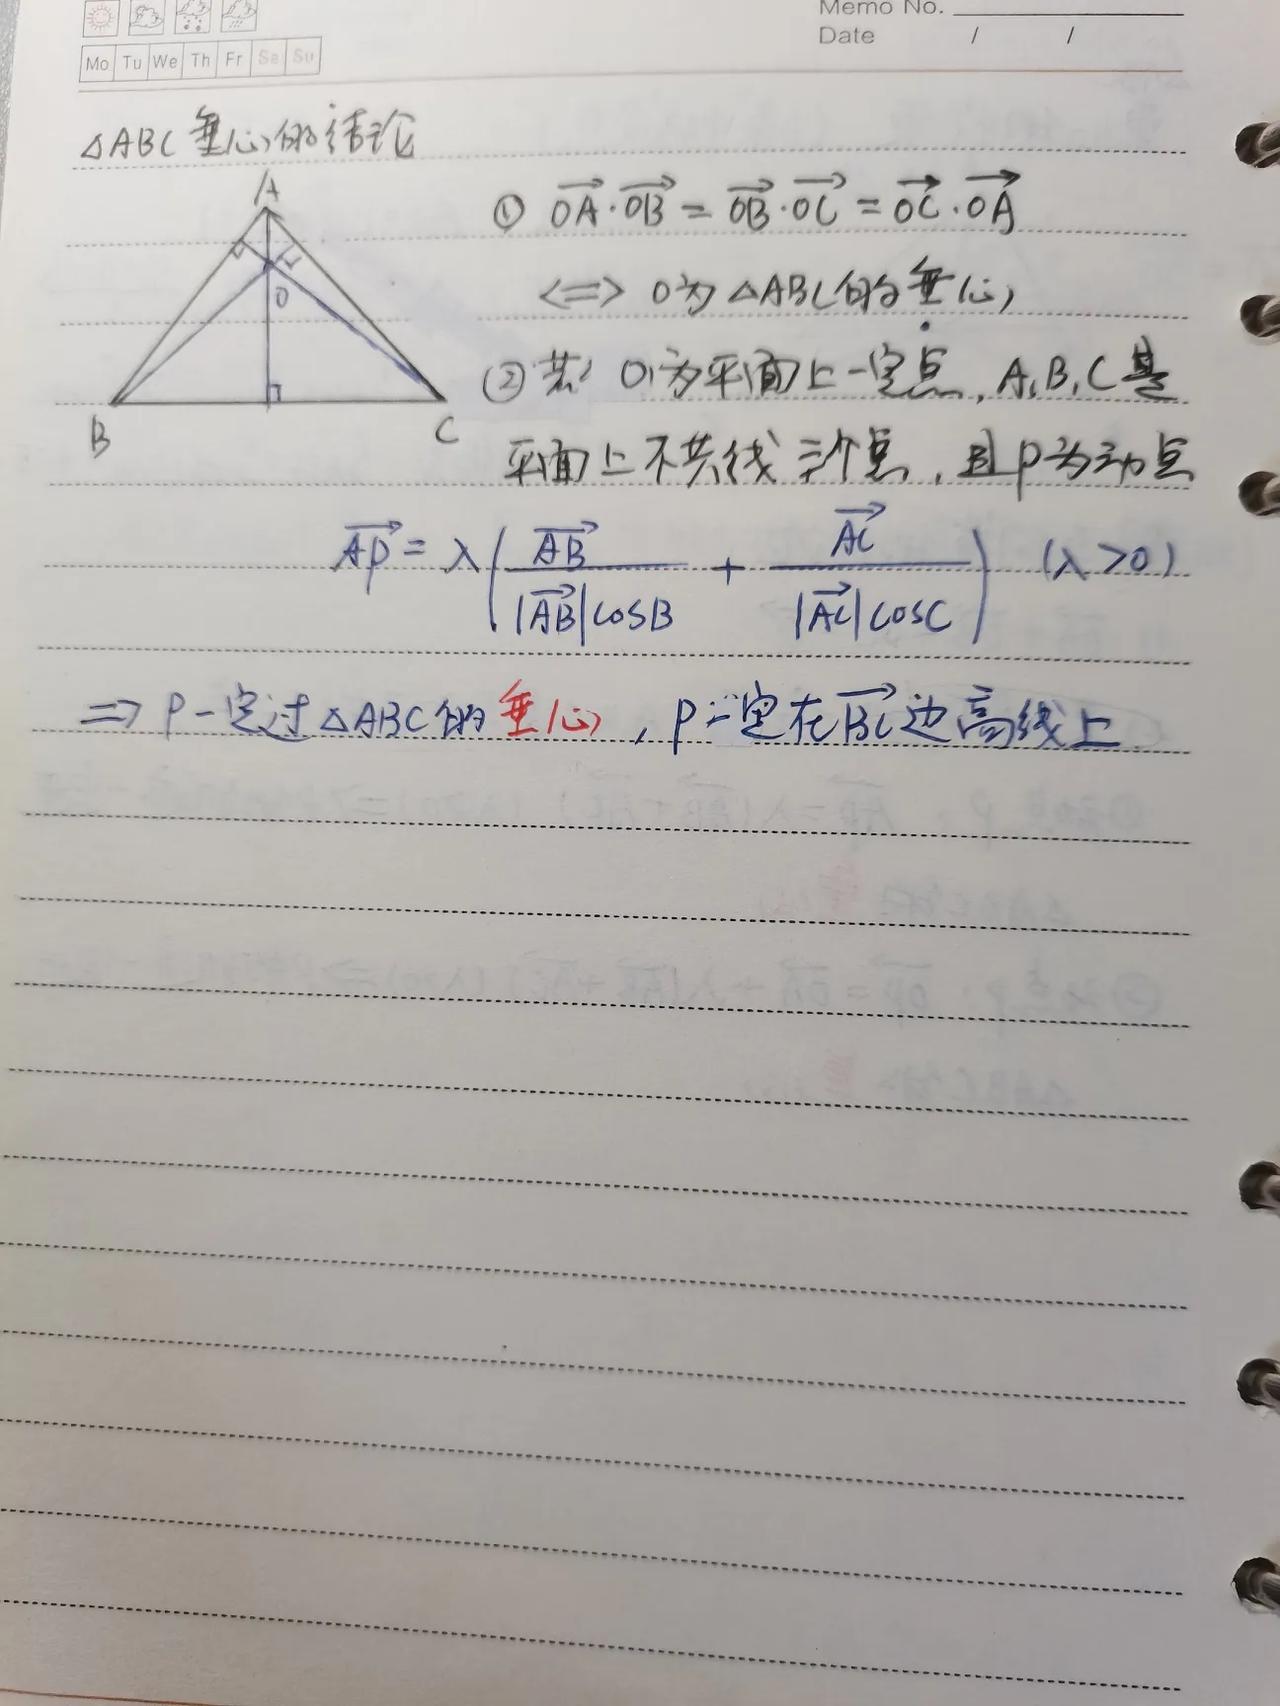 Memo No.
Date / /
Mo Tu We Th Fr Sa Su
△ABC垂心的结论
A
O
B
C
① $\overrightarrow{OA}\cdot\overrightarrow{OB}=\overrightarrow{OB}\cdot\overrightarrow{OC}=\overrightarrow{OC}\cdot\overrightarrow{OA}$
<=> O为△ABC的垂心
② 若O为平面上一定点,A,B,C是
平面上不共线三个点,且P为动点
$\overrightarrow{AP}=\lambda\left(\frac{\overrightarrow{AB}}{|\overrightarrow{AB}|\cos B}+\frac{\overrightarrow{AC}}{|\overrightarrow{AC}|\cos C}\right)$ (λ>0)
=> P一定过△ABC的垂心,P一定在$\overrightarrow{BC}$边高线上